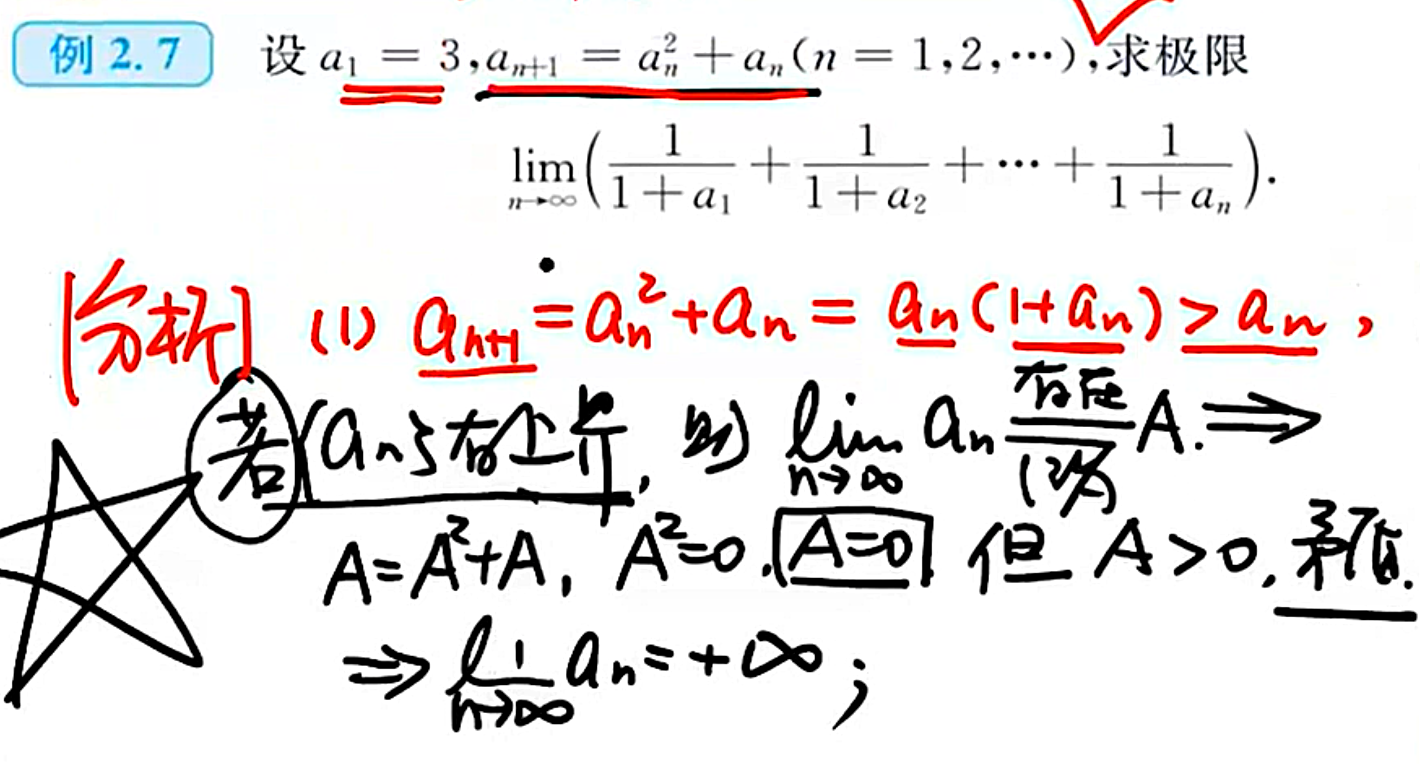 例 2.7 设 a₁ = 3, aₙ₊₁ = aₙ² + aₙ (n = 1,2,⋯), 求极限
lim_{n→∞} ( 1/(1+a₁) + 1/(1+a₂) + ⋯ + 1/(1+aₙ) ).
[分析] (1) aₙ₊₁ = aₙ² + aₙ = aₙ(1+aₙ) > aₙ,
若{aₙ}有上界, 则 lim_{n→∞} aₙ 存在 记为 A. ⟹
A = A² + A, A² = 0, A = 0. 但 A > 0, 矛盾.
⟹ lim_{n→∞} aₙ = +∞ ;